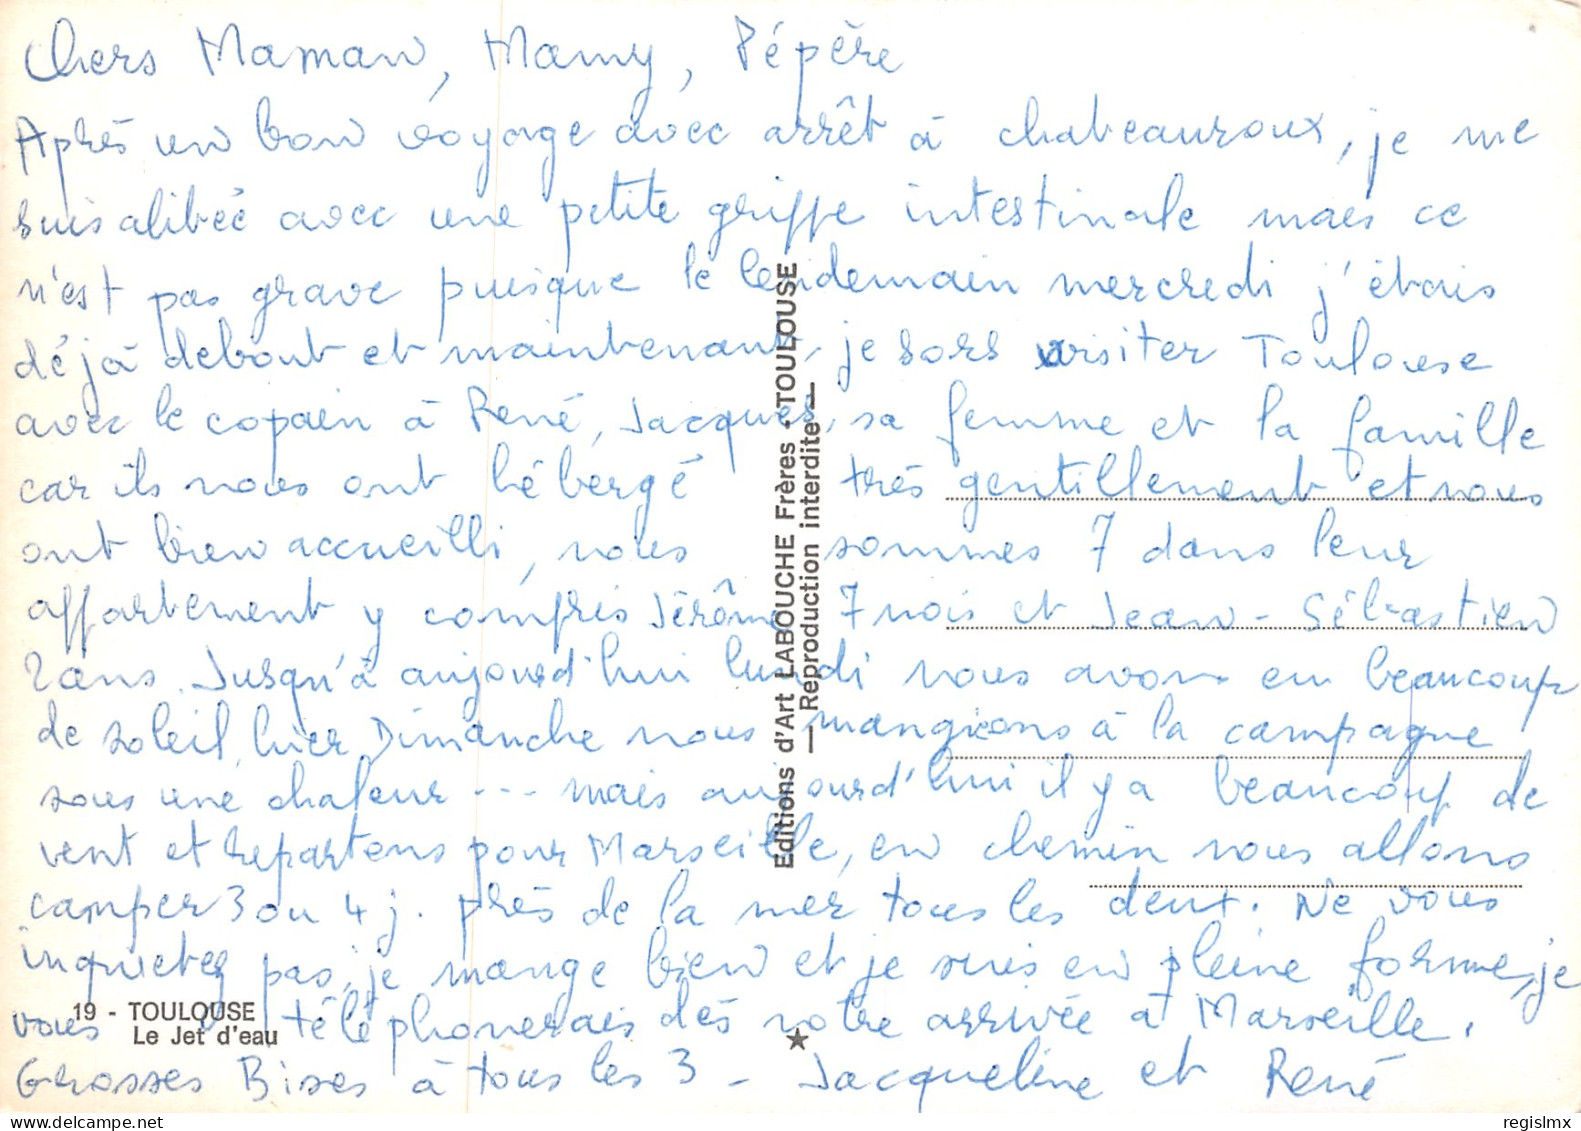 Chers Maman, Mamy, Pépère
Après un bon voyage avec arrêt à chateauroux, je me
suis alitéé avec une petite griffe intestinale mais ce
n'est pas grave puisque le lendemain mercredi j'étais
déjà debout et maintenant, je sors visiter Toulouse
avec le copain à René, Jacques, sa femme et la famille
car ils nous ont hébergé très gentillement et nous
ont bien accueilli, nous sommes 7 dans leur
appartement y compris Jérôme 7 mois et Jean-Sébastien
2 ans. Jusqu'à aujourd'hui lundi nous avons eu beaucoup
de soleil, hier Dimanche nous mangions à la campagne
sous une chaleur --- mais aujourd'hui il y a beaucoup de
vent et repartons pour Marseille, en chemin nous allons
camper 3 ou 4 j. près de la mer tous les deux. Ne vous
inquietez pas, je mange bien et je suis en pleine forme, je
vous téléphonerais dès notre arrivée à Marseille.
Grosses Bises à tous les 3 - Jacqueline et René
19 - TOULOUSE
Le Jet d'eau
Editions d'Art LABOUCHE Frères - TOULOUSE
— Reproduction interdite —
regislmx